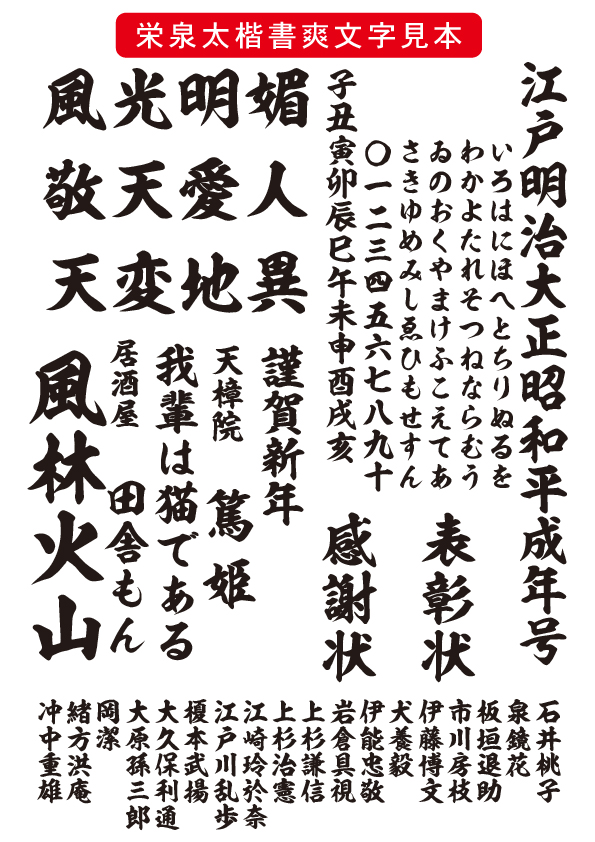 栄泉太楷書爽文字見本
江戸明治大正昭和平成年号
いろはにほへとちりぬるを
わかよたれそつねならむう
ゐのおくやまけふこえてあ
さきゆめみしゑひもせすん
〇一二三四五六七八九十
子丑寅卯辰巳午未申酉戌亥
表彰状
感謝状
媚人異
明愛地
光天変
風敬天
謹賀新年
天樟院
篤姫
我輩は猫である
居酒屋
田舎もん
風林火山
石井桃子
泉鏡花
板垣退助
市川房枝
伊藤博文
犬養毅
伊能忠敬
岩倉具視
上杉謙信
上杉治憲
江崎玲於奈
江戸川乱歩
榎本武揚
大久保利通
大原孫三郎
岡潔
緒方洪庵
沖中重雄